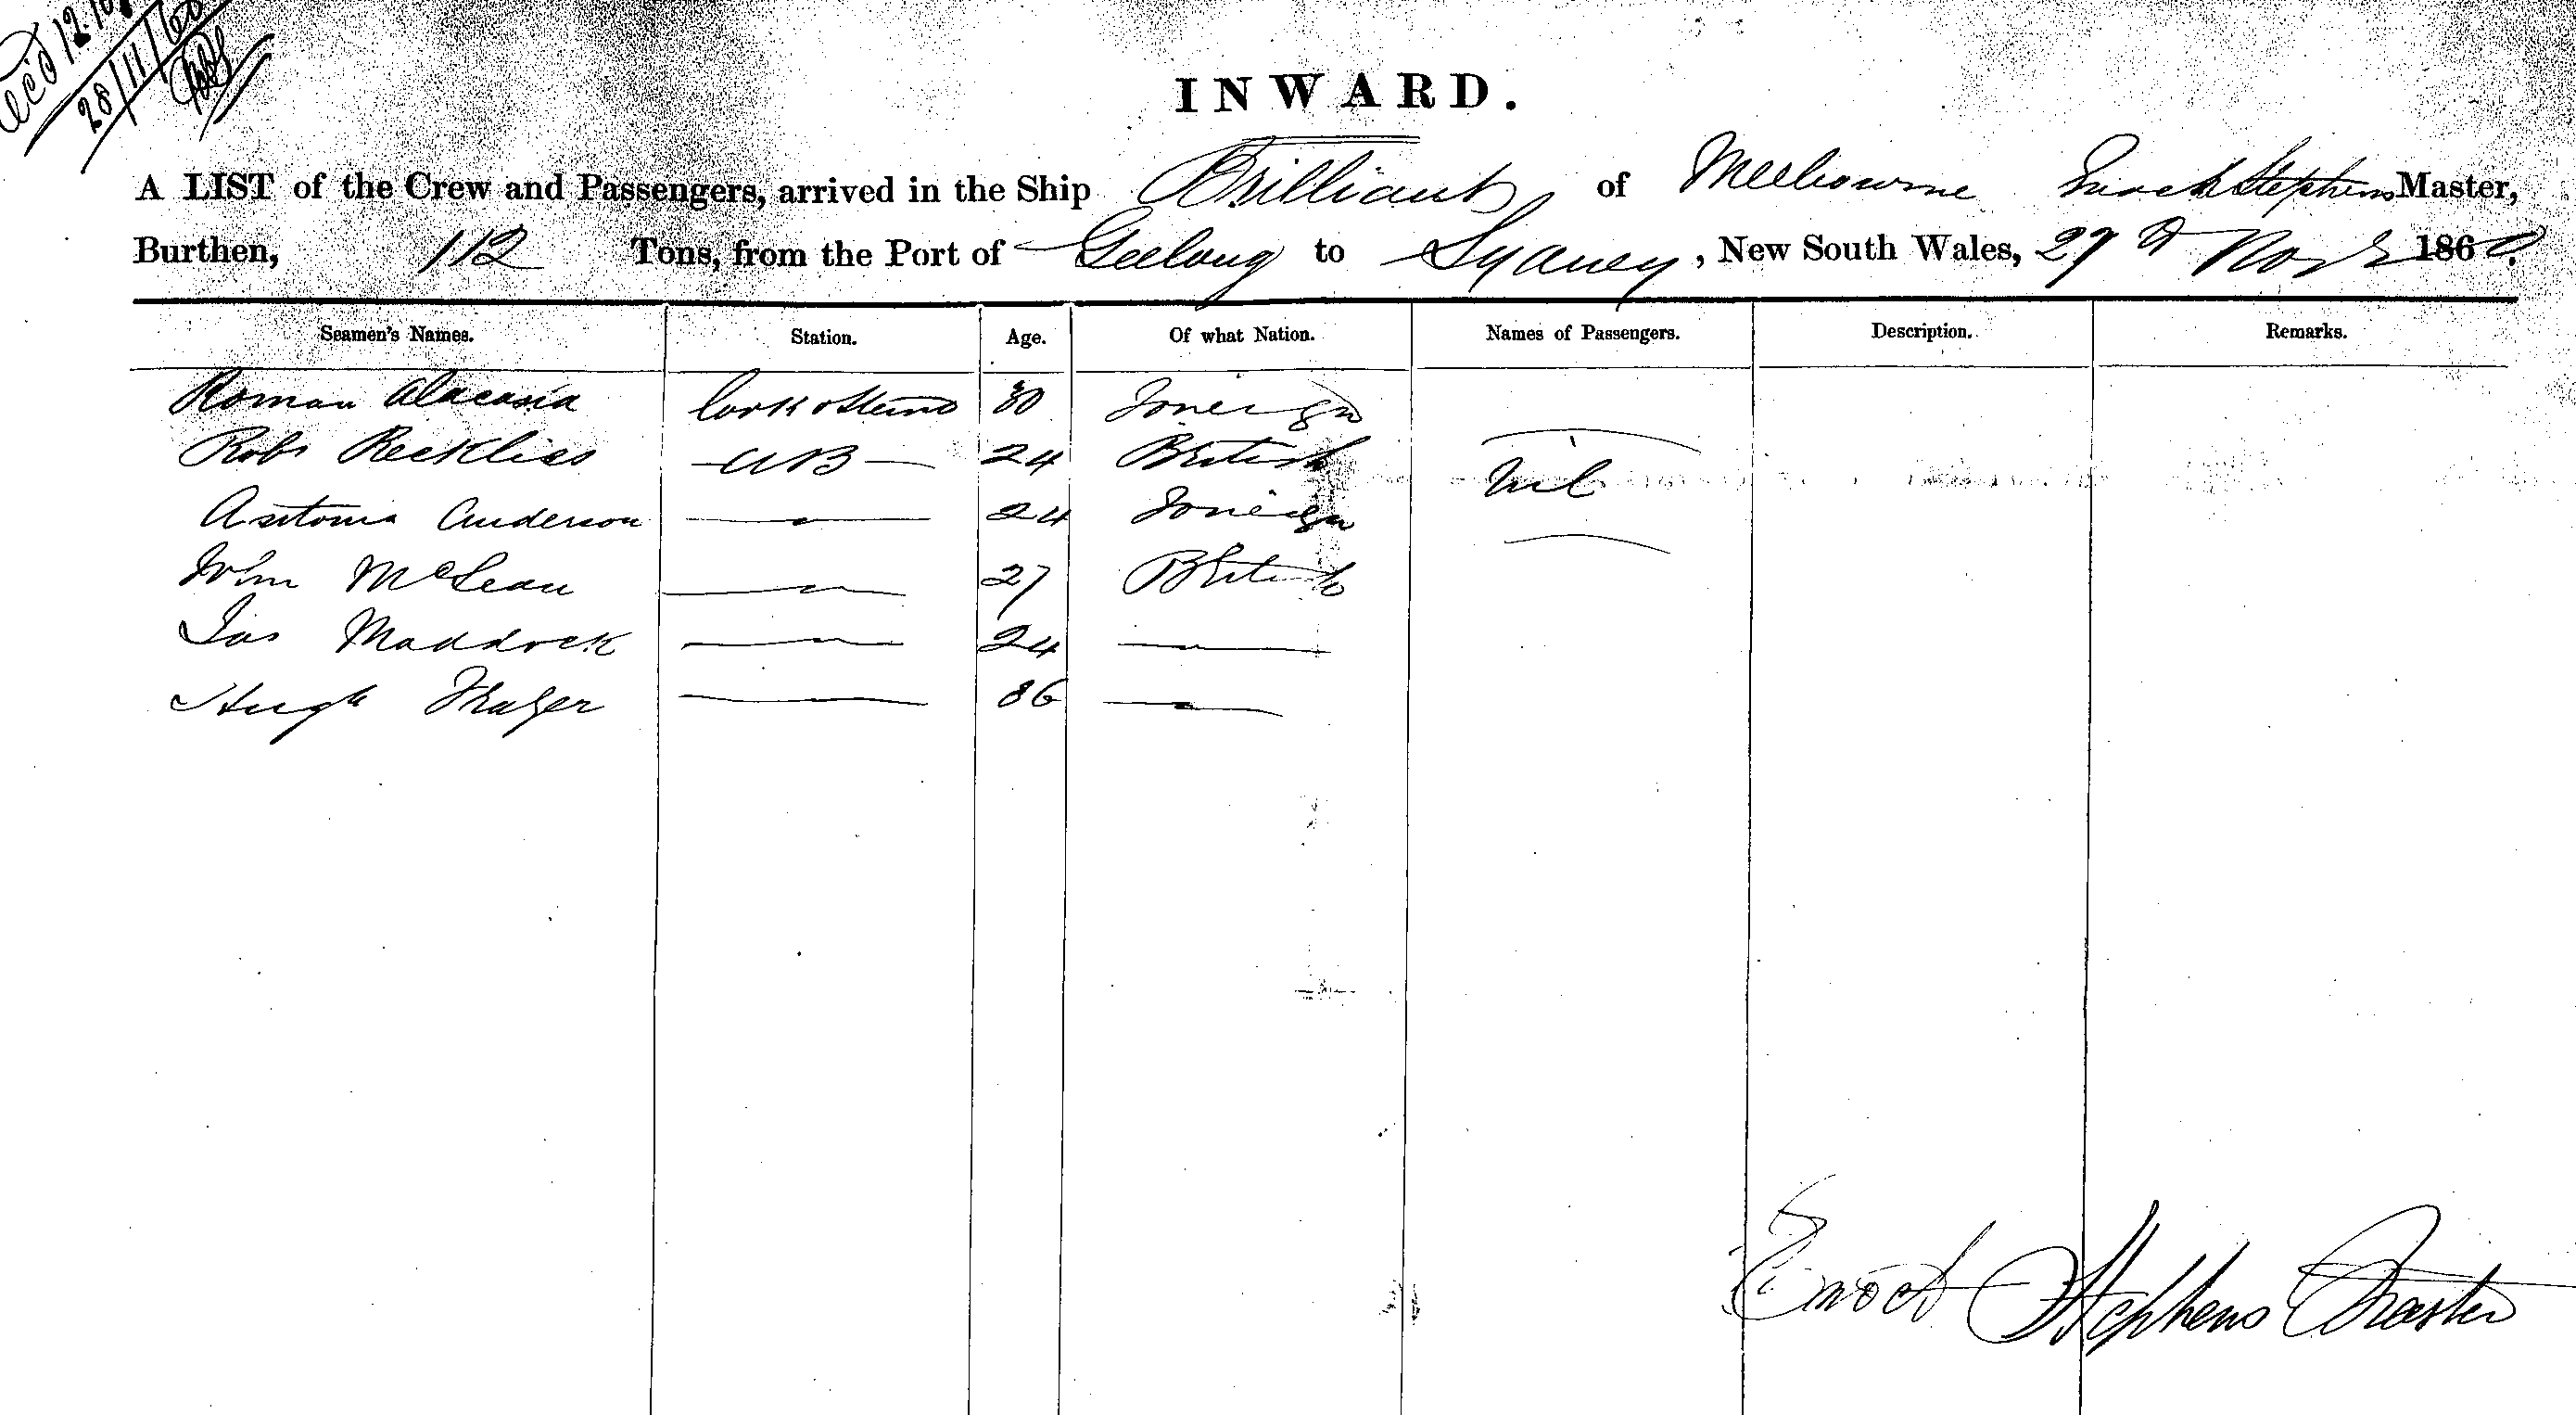 28/11/60
INWARD.
A LIST of the Crew and Passengers, arrived in the Ship Brilliant of Melbourne Enoch Stephens Master,
Burthen, 112 Tons, from the Port of Geelong to Sydney, New South Wales, 29th Novr 1860.
Seamen's Names. Station. Age. Of what Nation. Names of Passengers. Description. Remarks.
Roman Cook & 30 Foreign
Robt Reckliss AB 24 British Nil
Anderson 24 Foreign
McLean 27 British
Jas Maddock 24
Hugh Frazer 36
Enoch Stephens Master